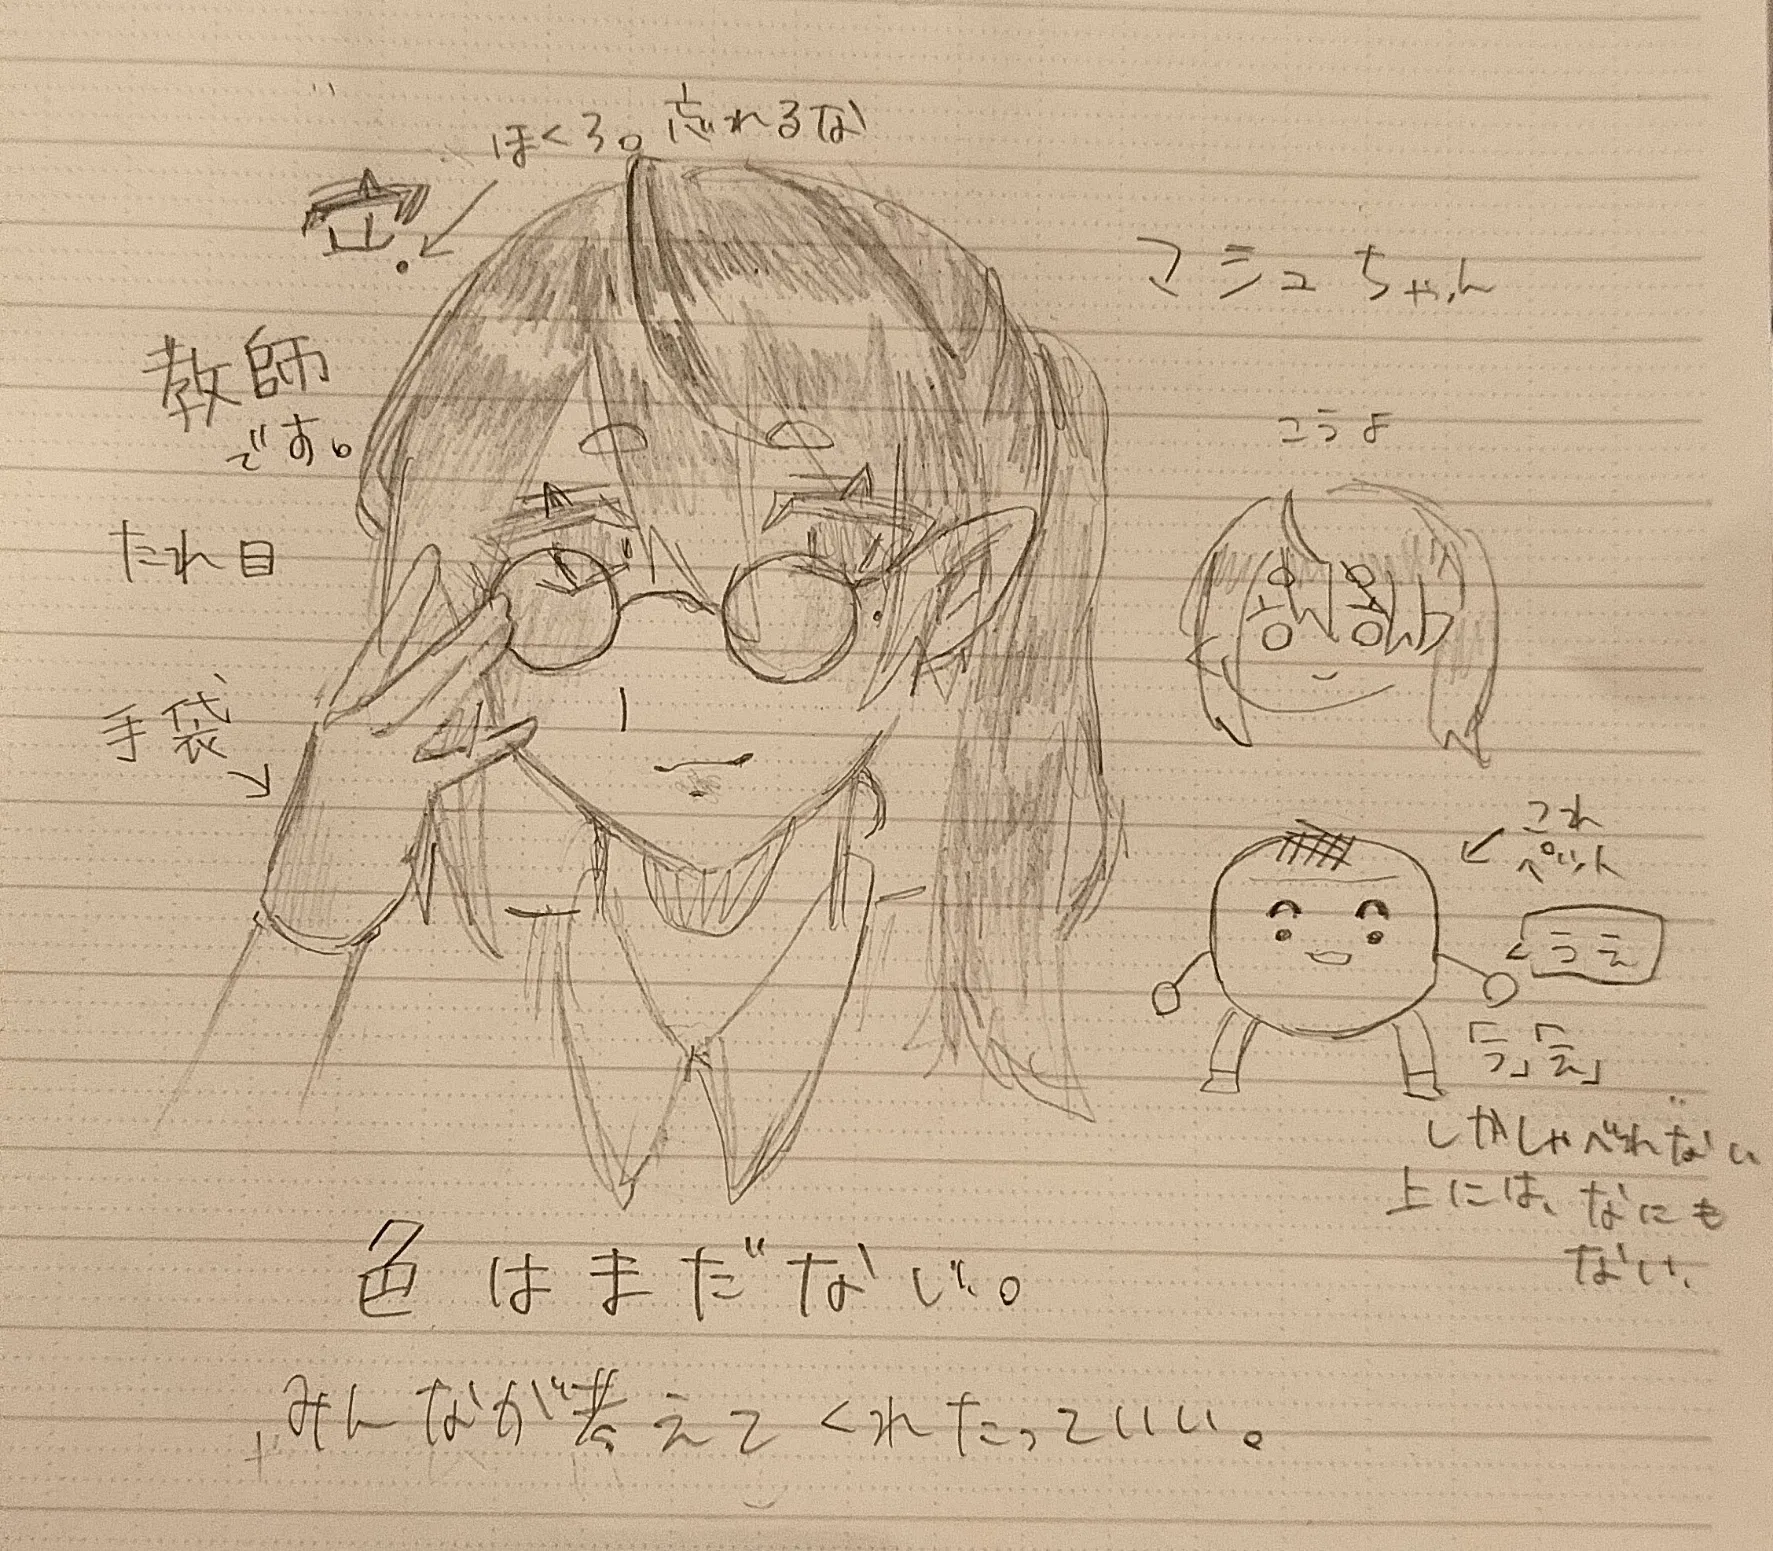 ほくろ。忘れるな
マシュちゃん
教師
です。
たれ目
手袋
こうよ
これ
ペット
うえ
「う」「え」
しかしゃべれない
上には、なにも
ない、
色はまだない。
みんなが考えてくれたっていい。